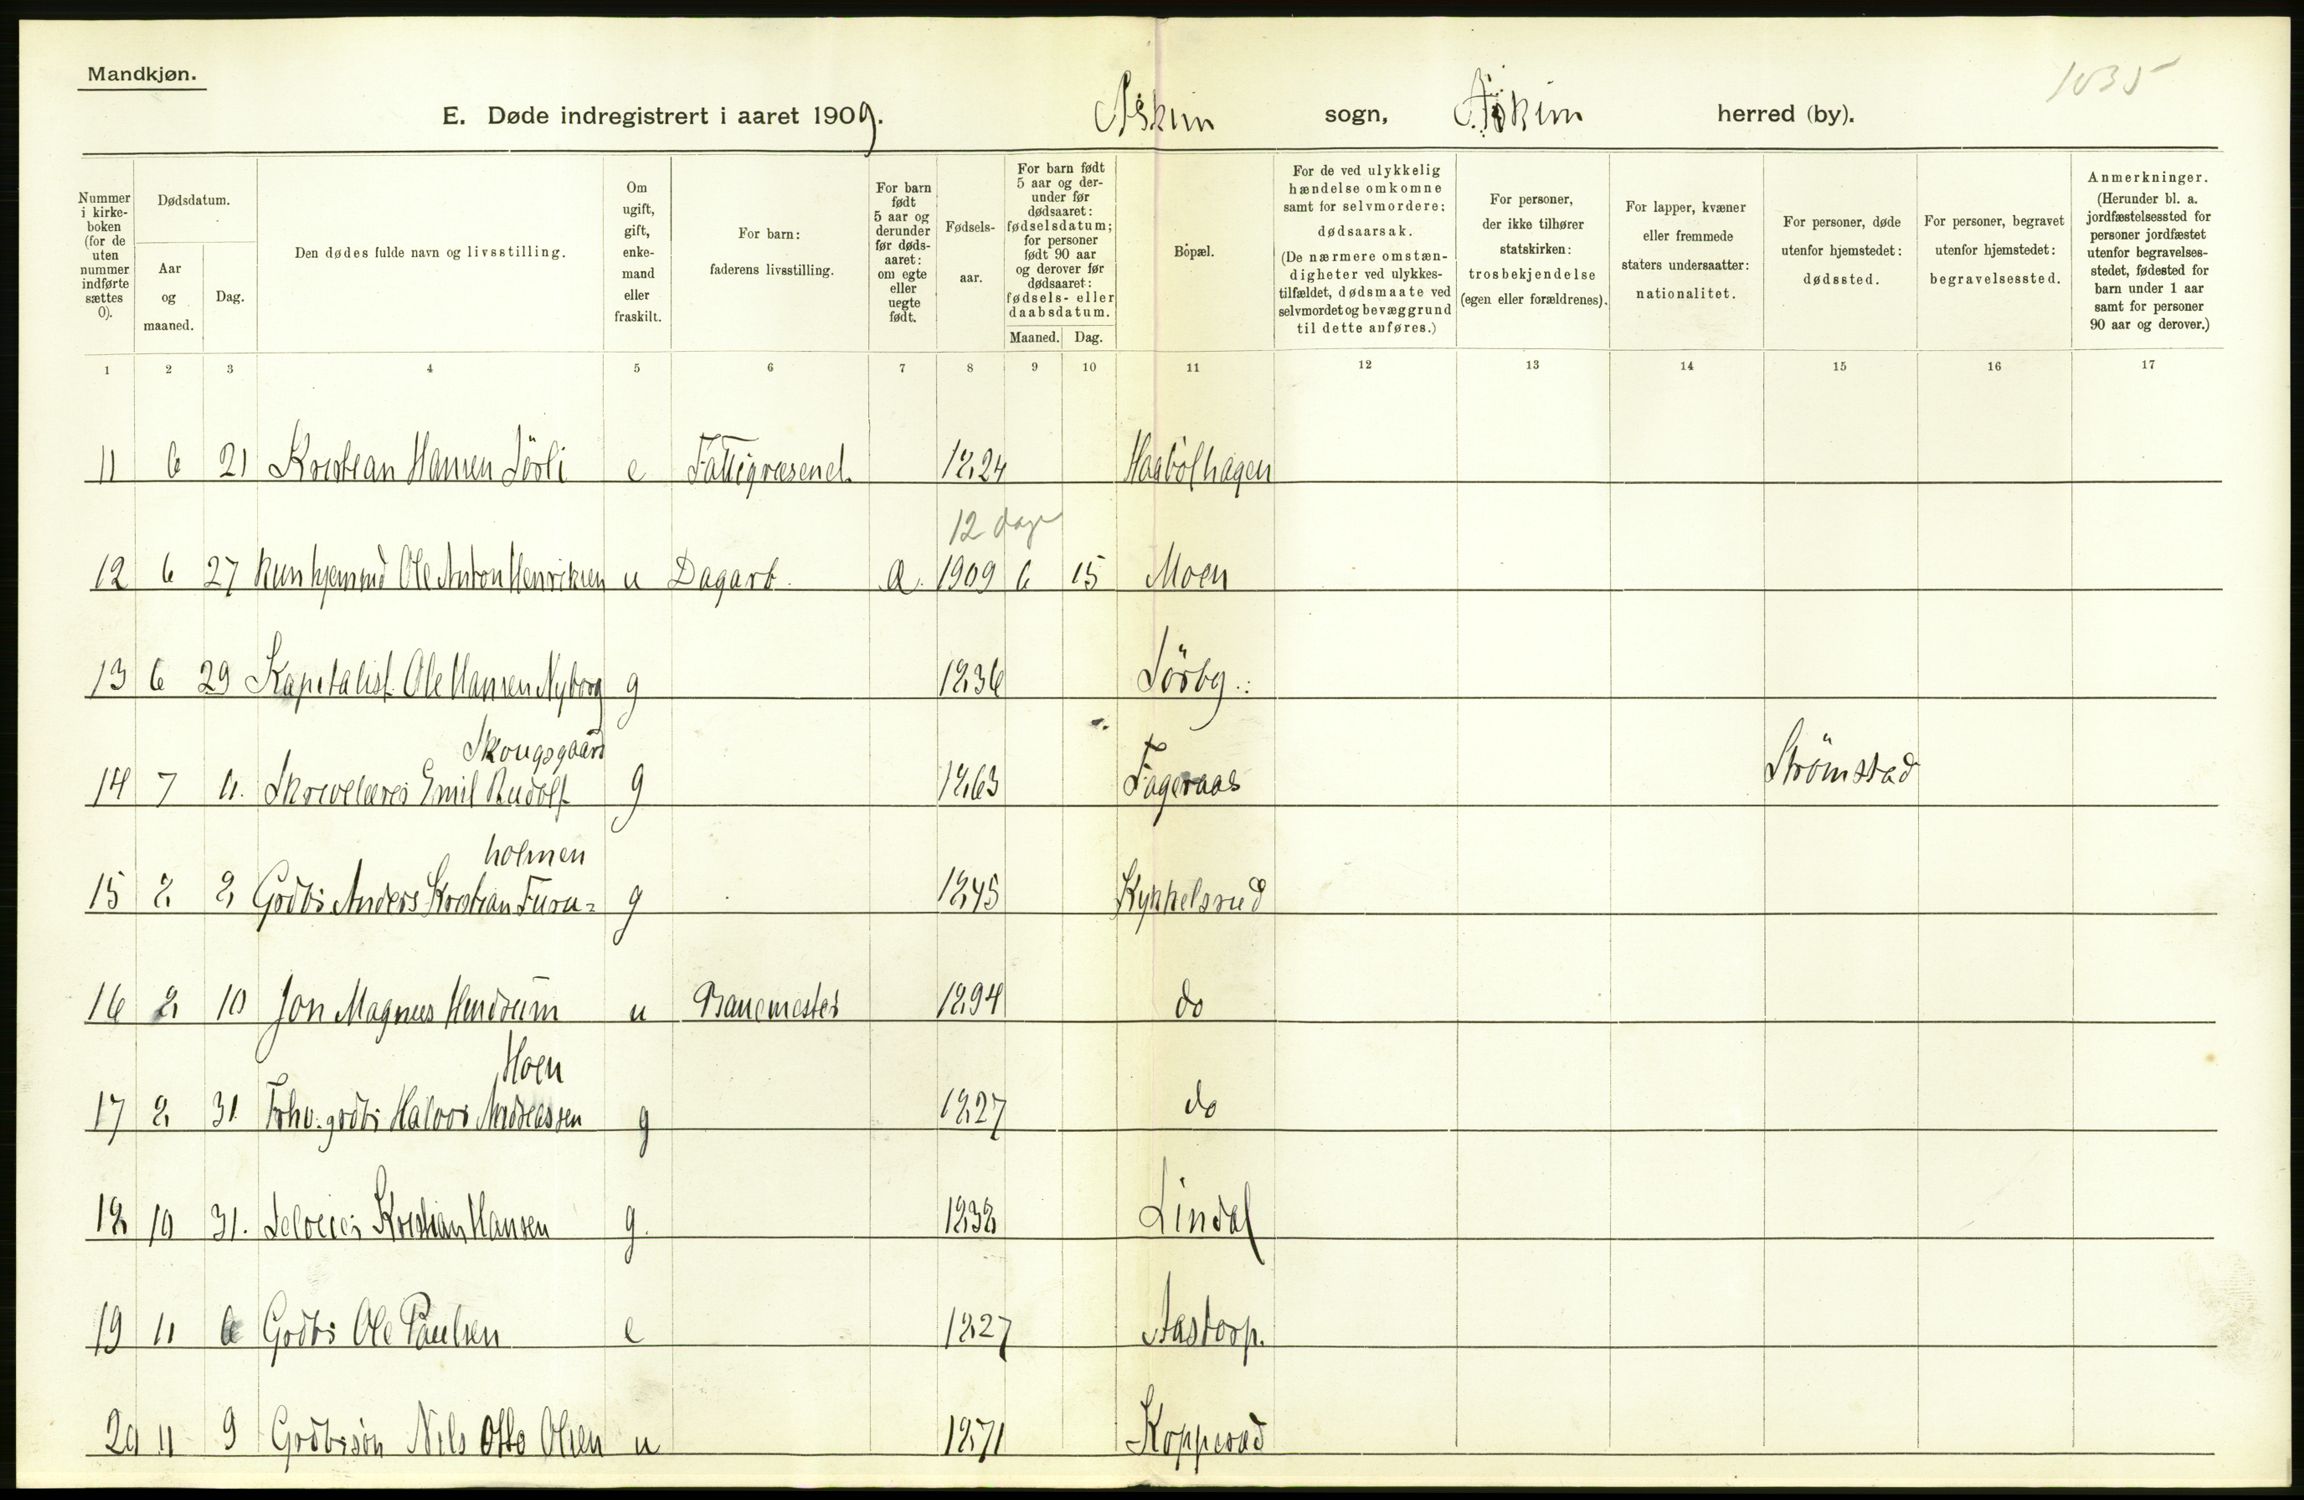 Mandkjøn.
1035
E. Døde indregistrert i aaret 1909. Askim sogn, Askim herred (by).
Nummer i kirke-boken (for de uten nummer indførte sættes 0).
Dødsdatum.
Aar og maaned.
Dag.
Den dødes fulde navn og livsstilling.
Om ugift, gift, enke-mand eller fraskilt.
For barn: faderens livsstilling.
For barn født 5 aar og derunder før døds-aaret: om egte eller uegte født.
Fødsels-aar.
For barn født 5 aar og der-under før dødsaaret: fødselsdatum; for personer født 90 aar og derover før dødsaaret: fødsels- eller daabsdatum.
Maaned. Dag.
Bopæl.
For de ved ulykkelig hændelse omkomne samt for selvmordere: dødsaarsak. (De nærmere omstæn-digheter ved ulykkes-tilfældet, dødsmaate ved selvmordet og bevæggrund til dette anføres.)
For personer, der ikke tilhører statskirken: trosbekjendelse (egen eller forældrenes).
For lapper, kvæner eller fremmede staters undersaatter: nationalitet.
For personer, døde utenfor hjemstedet: dødssted.
For personer, begravet utenfor hjemstedet: begravelsessted.
Anmerkninger. (Herunder bl. a. jordfæstelsessted for personer jordfæstet utenfor begravelses-stedet, fødested for barn under 1 aar samt for personer 90 aar og derover.)
1 2 3 4 5 6 7 8 9 10 11 12 13 14 15 16 17
11 6 21 Kristian Hansen Sörli e Fattigvæsenet. 1824 Haabölhagen
12 dage
12 6 27 kun hjemmed Ole Anton Henriksen u Dagarb. Æ. 1909 6 15 Moen
13 6 29 Kapitalist Ole Hansen Nyborg g 1836 Sörby.
Skougsgaard
14 7 11. Skrivelærer Emil Rudolf g 1863 Fageraas Strömstad
holmen
15 8 8 Grdbr Anders Kristian Furu= g 1845 Kykkelsrud
16 8 10 Jon Magnus Hindrum u Banemester 1894 do
Hoen
17 8 31 Forhv. grdbr Halvor Andreassen g 1827 do
18 10 31. Selveier Kristian Hansen g. 1838 Lindal
19 11 6 Grdbr Ole Paulsen e 1827 Aastorp.
20 11 9 Grdbrsön Nils Otto Olsen u 1871 Kopperud